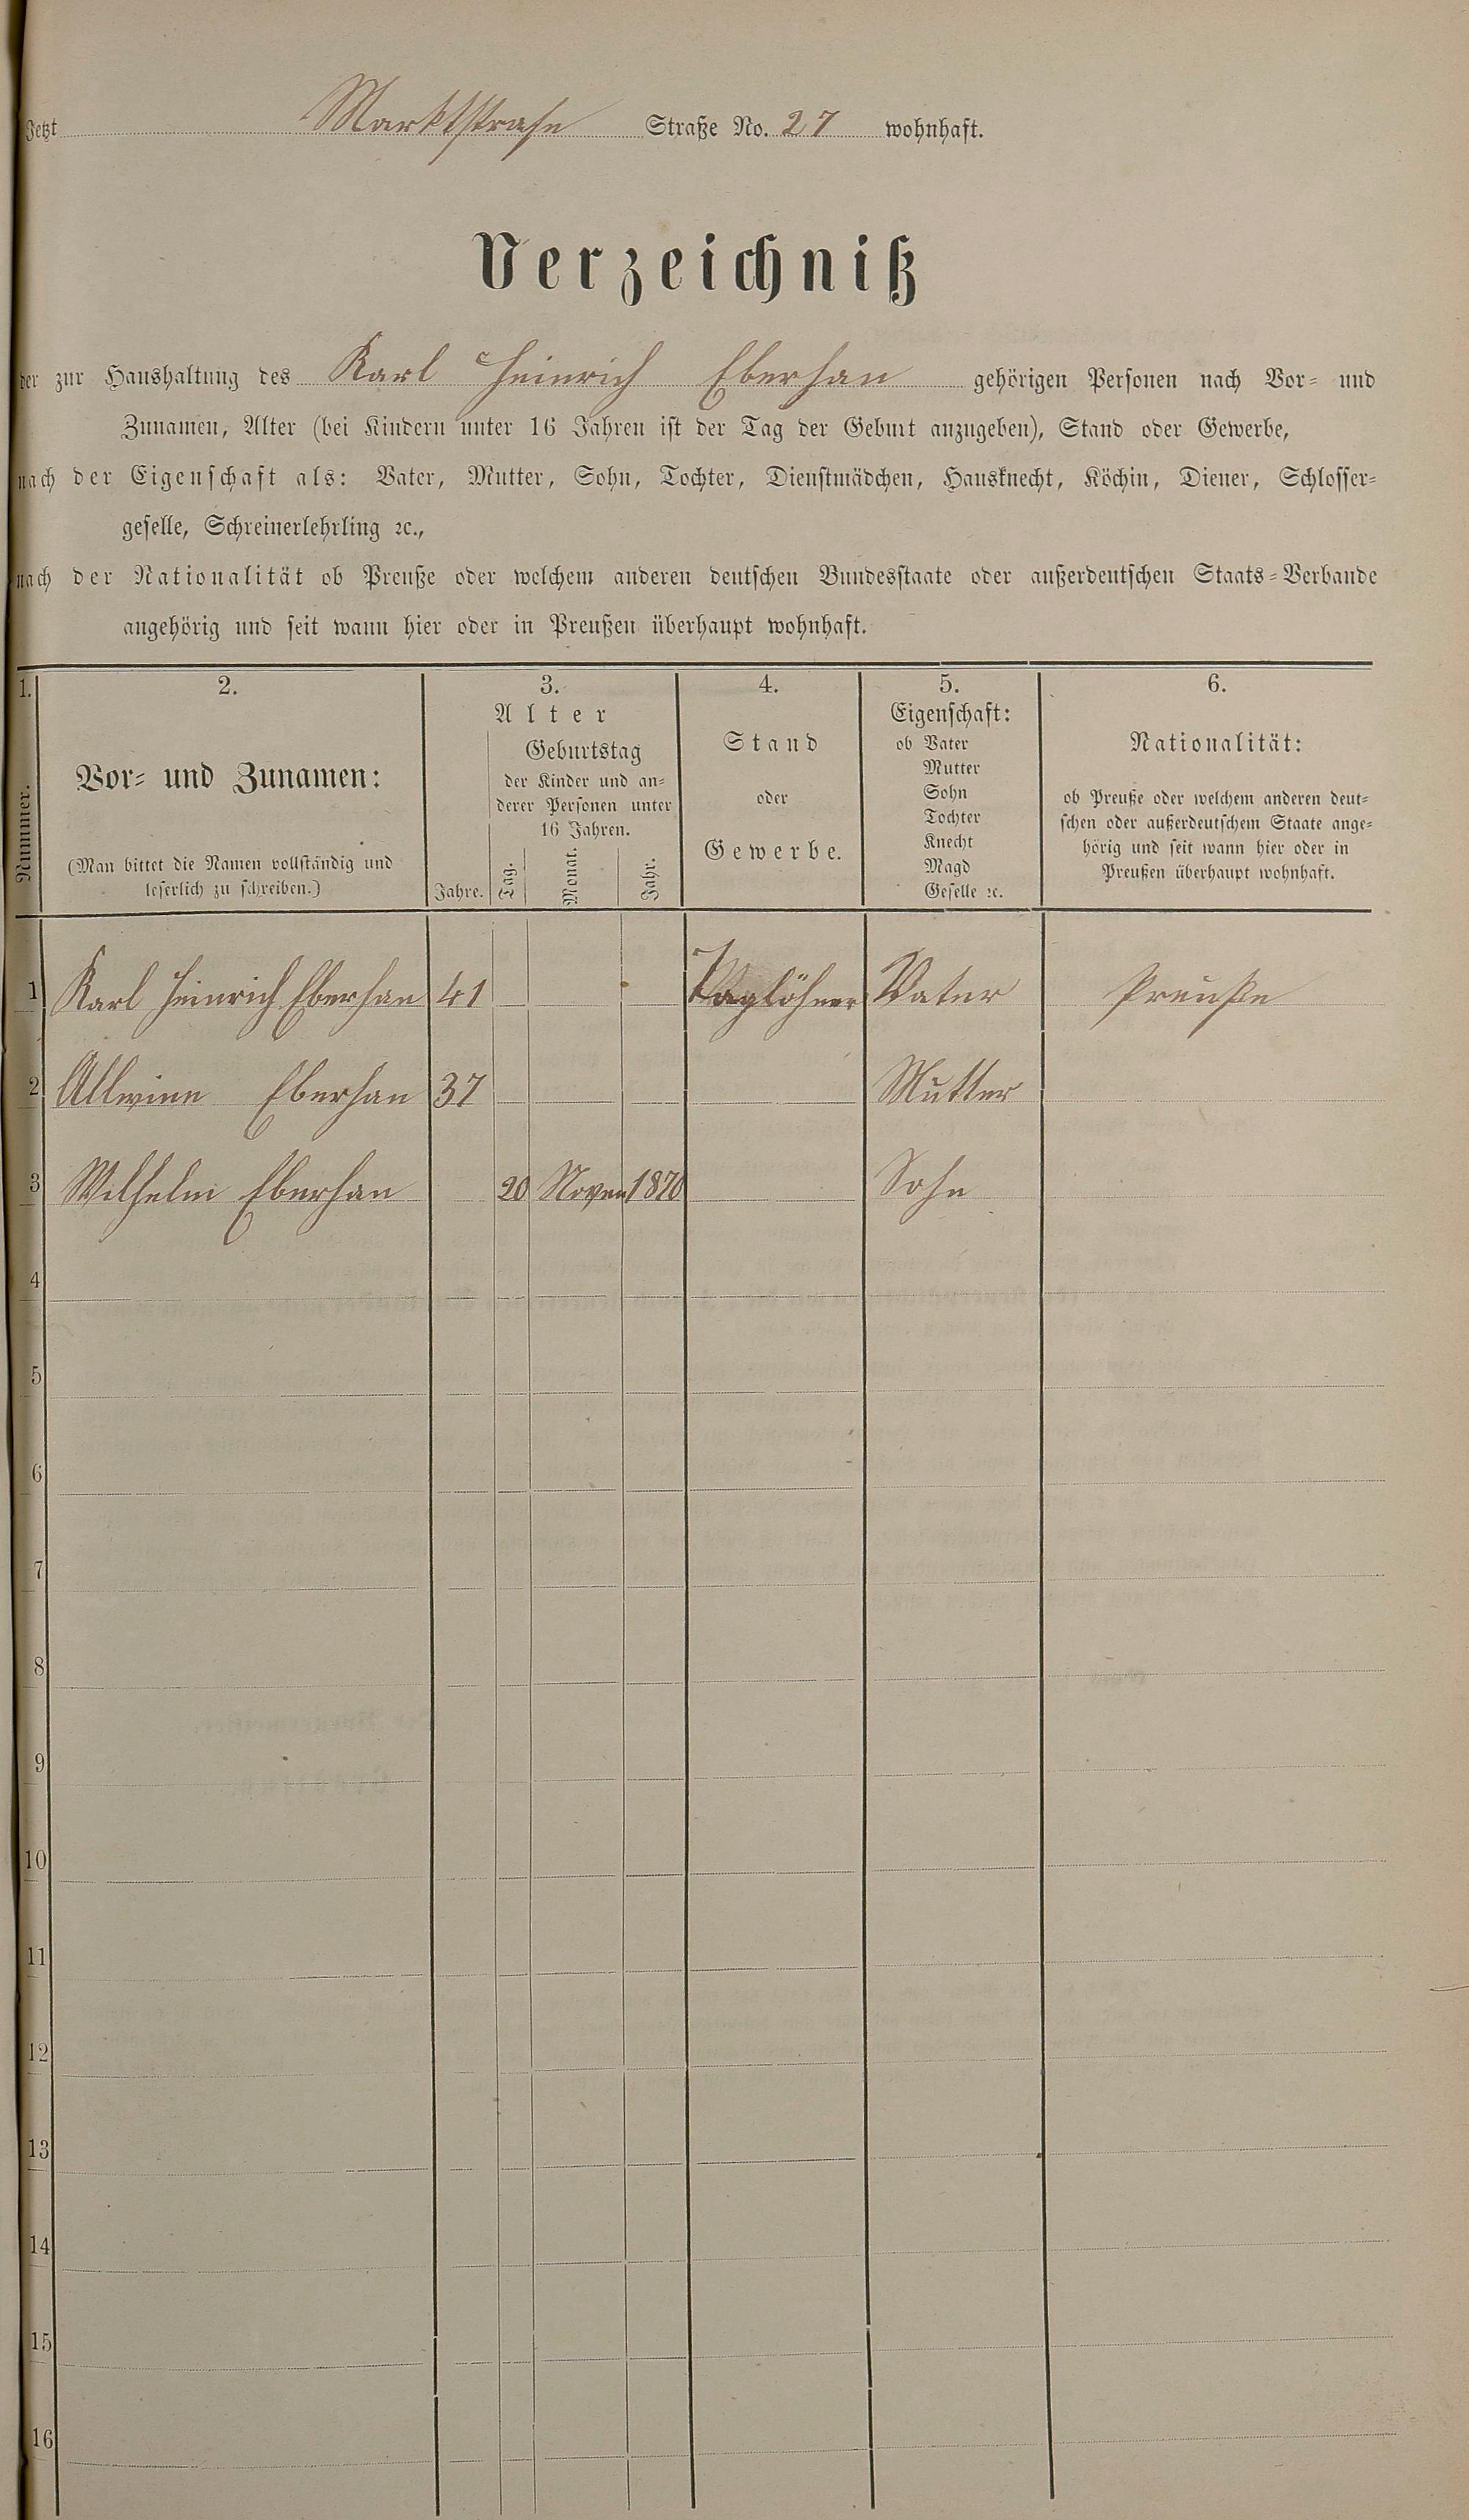 Jetzt Marktstrase Straße No. 27 wohnhaft.
Verzeichniß
der zur Haushaltung des Karl Heinrich Eberhan gehörigen Personen nach Vor- und
Zunamen, Alter (bei Kindern unter 16 Jahren ist der Tag der Geburt anzugeben), Stand oder Gewerbe,
nach der Eigenschaft als: Vater, Mutter, Sohn, Tochter, Dienstmädchen, Hausknecht, Köchin, Diener, Schlosser-
geselle, Schreinerlehrling ꝛc.,
nach der Nationalität ob Preuße oder welchem anderen deutschen Bundesstaate oder außerdeutschen Staats-Verbande
angehörig und seit wann hier oder in Preußen überhaupt wohnhaft.
1.
Nummer.
2.
Vor- und Zunamen:
(Man bittet die Namen vollständig und
leserlich zu schreiben.)
3.
Alter
Jahre.
Geburtstag
der Kinder und an-
derer Personen unter
16 Jahren.
Tag. Monat. Jahr.
4.
Stand
oder
Gewerbe.
5.
Eigenschaft:
ob Vater
Mutter
Sohn
Tochter
Knecht
Magd
Geselle ꝛc.
6.
Nationalität:
ob Preuße oder welchem anderen deut-
schen oder außerdeutschem Staate ange-
hörig und seit wann hier oder in
Preußen überhaupt wohnhaft.
1 Karl Heinrich Eberhan 41 Taglöhner Vater Preuße
2 Allwine Eberhan 37 Mutter
3 Wilhelm Eberhan 20 Novem 1870 Sohn
4
5
6
7
8
9
10
11
12
13
14
15
16